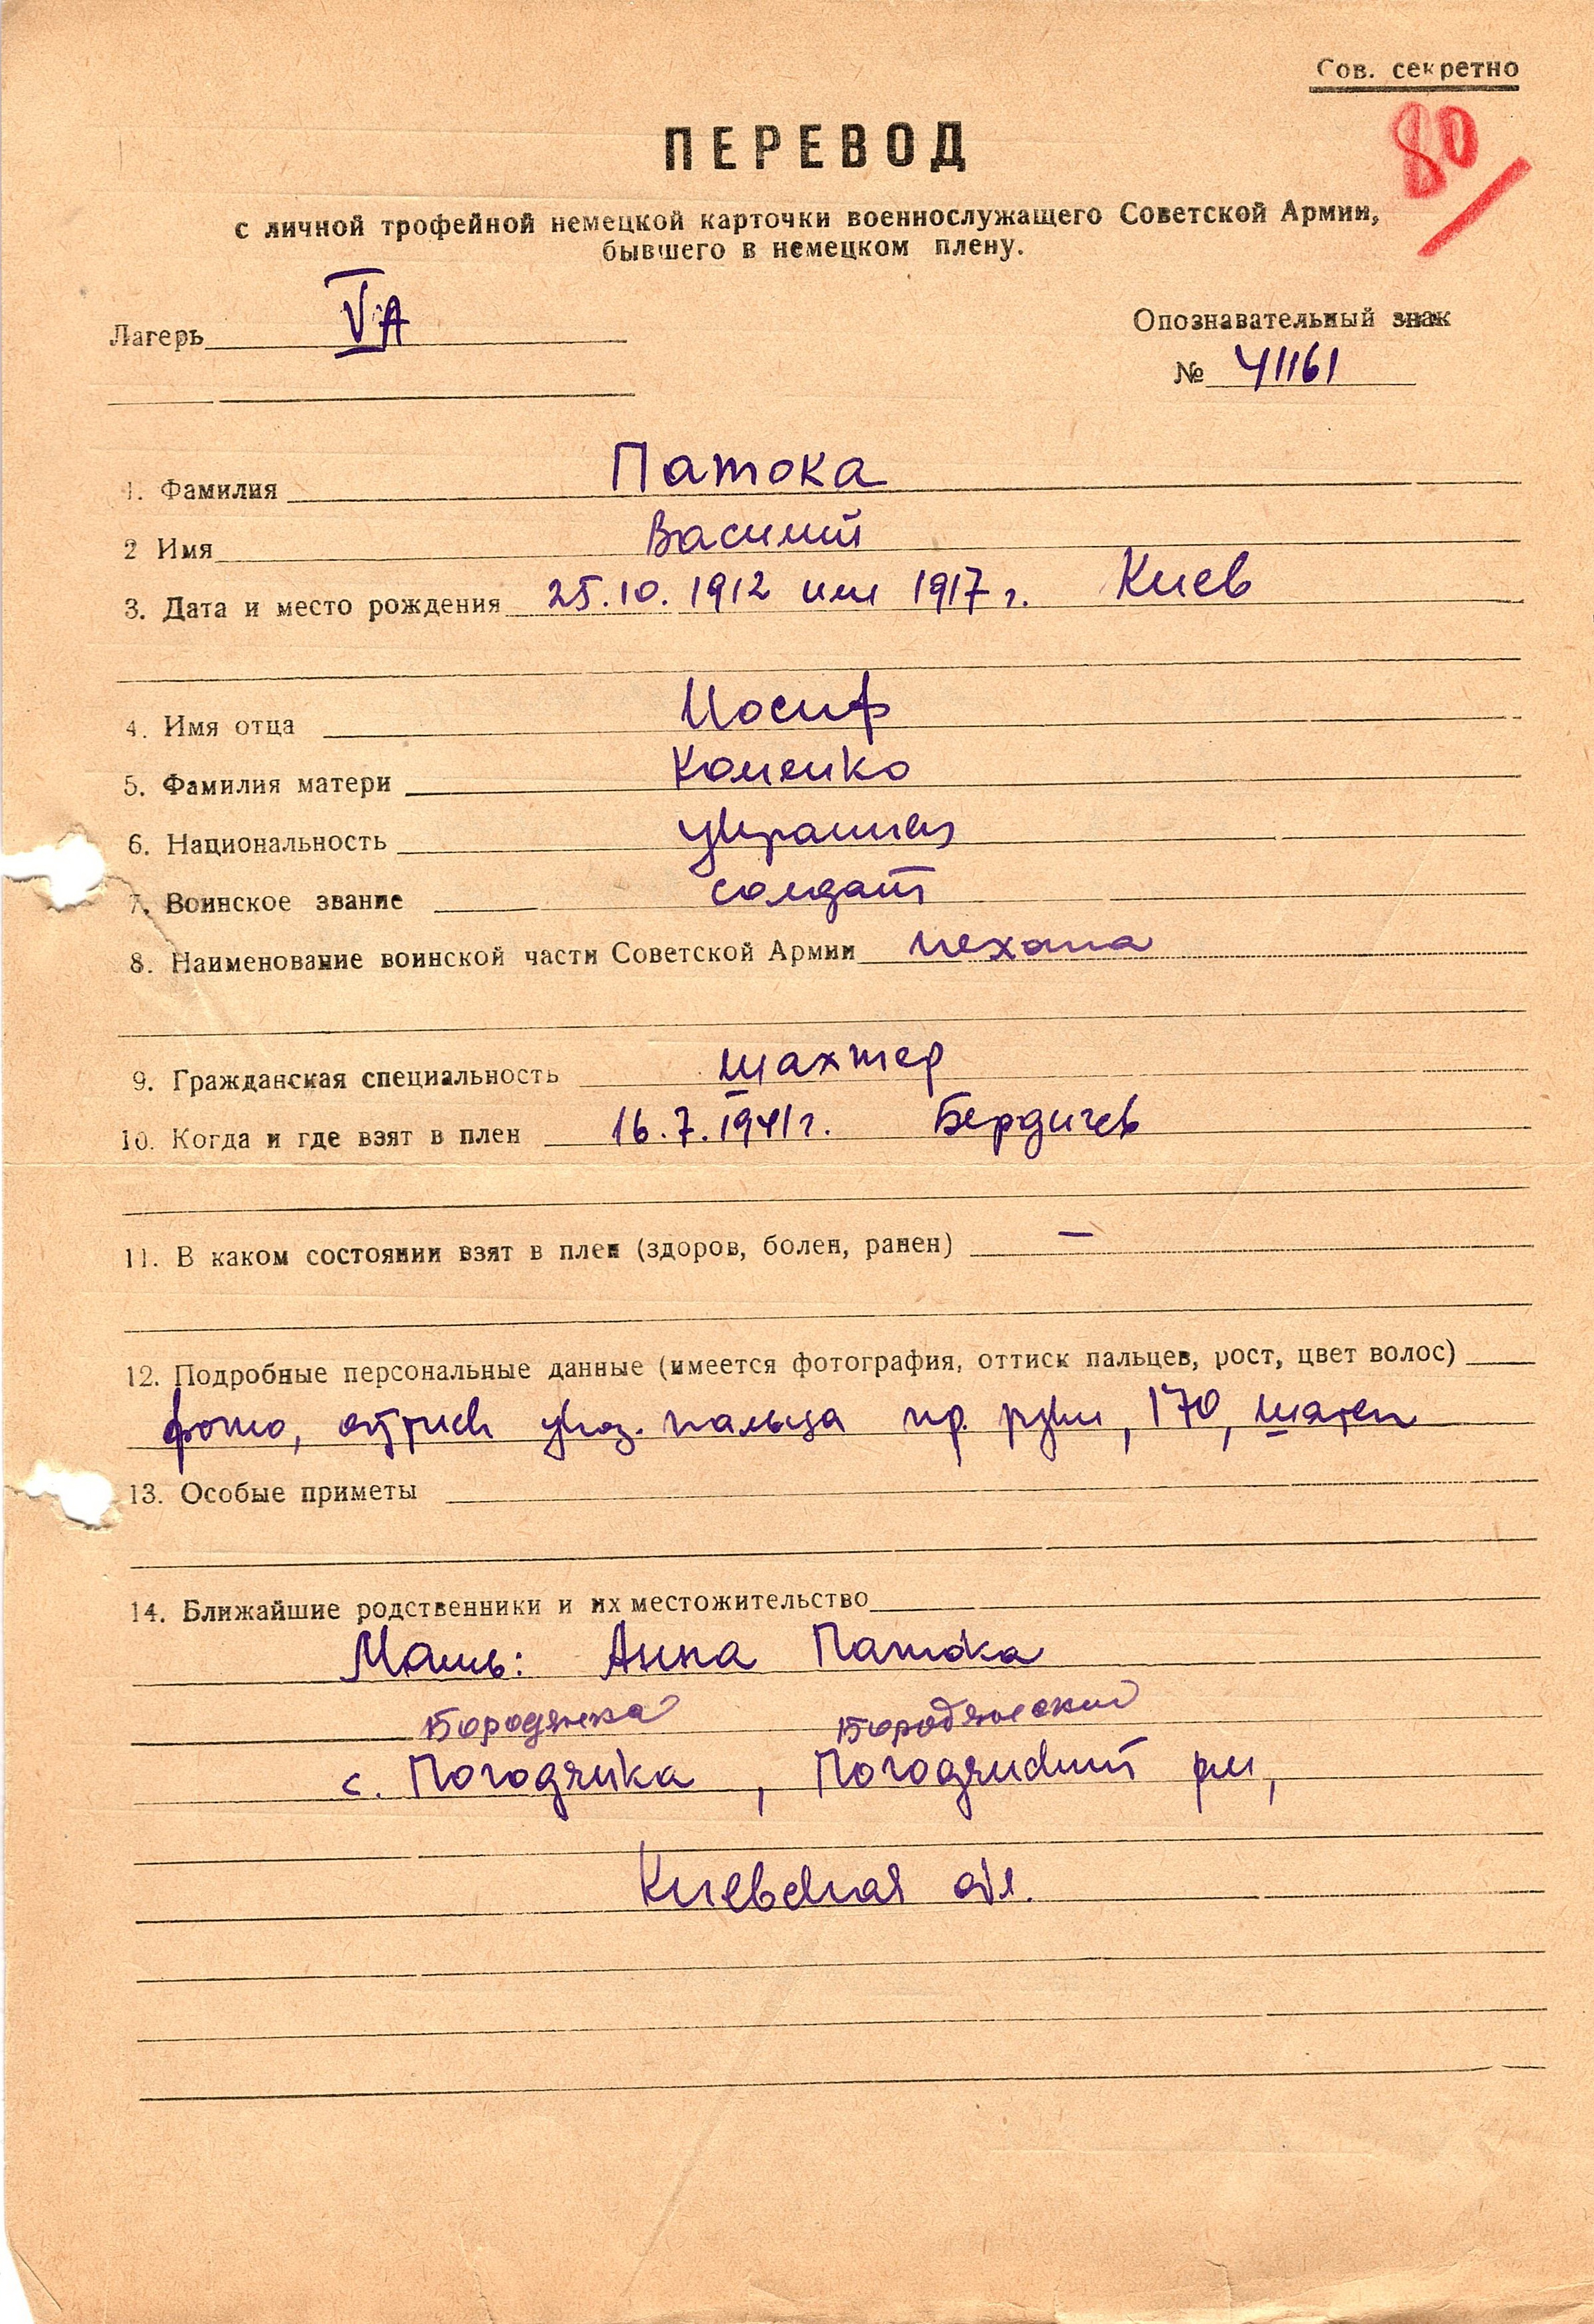 Сов. секретно
80
ПЕРЕВОД
с личной трофейной немецкой карточки военнослужащего Советской Армии,
бывшего в немецком плену.
Лагерь VA
Опознавательный знак
№ 41161
1. Фамилия Патока
2 Имя Василий
3. Дата и место рождения 25.10.1912 или 1917 г. Киев
4. Имя отца Иосиф
5. Фамилия матери
6. Национальность украинец
7. Воинское звание солдат
8. Наименование воинской части Советской Армии пехота
9. Гражданская специальность шахтер
10. Когда и где взят в плен 16.7.1941г. Бердичев
11. В каком состоянии взят в плен (здоров, болен, ранен) —
12. Подробные персональные данные (имеется фотография, оттиск пальцев, рост, цвет волос)
фото, оттиск указ. пальца пр. руки, 170, шатен
13. Особые приметы
14. Ближайшие родственники и их местожительство
Мать: Анна Патока
Бородянка Бородянский
с. Погодянка, Погодянский р-н,
Киевская обл.